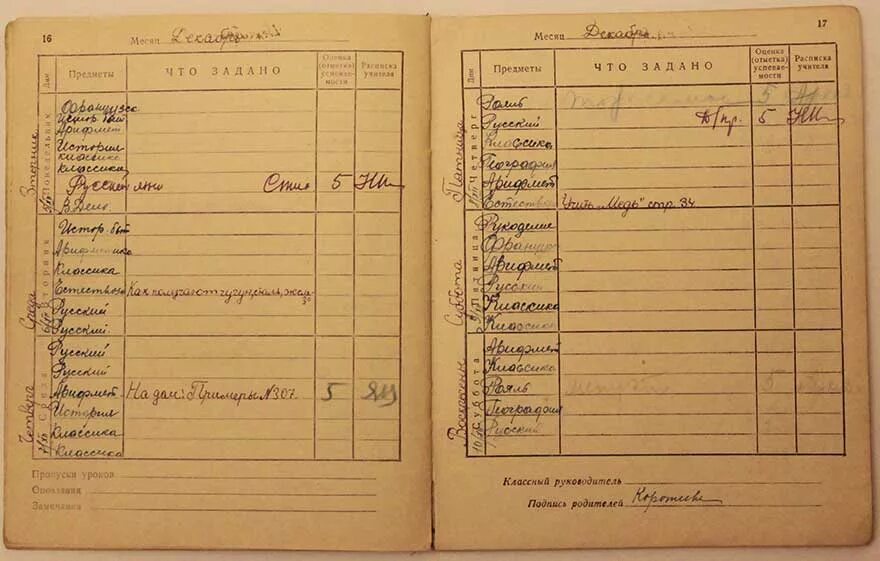 16
Месяц Декабрь
Дни Предметы ЧТО ЗАДАНО Оценка (отметка) успевае-мости Расписка учителя
Вторник
Понедельник
Француzск
Истор. быт
Арифмет
История
Классика
Классика
Русский язык Стих 5
В. Дело.
Среда
Вторник
Истор. быт
Арифметика
Классика
Естествозн Как получают чугун, сталь, желе-
зо
Русский
Русский.
Четверг
Среда
Русский
Русский
Арифмет На дом: Примеры №307. 5
История
Классика
Классика
Пропуски уроков
Опоздания
Замечания
17
Месяц Декабрь
Дни Предметы ЧТО ЗАДАНО Оценка (отметка) успевае-мости Расписка учителя
Пятница
Четверг
Рояль 5
Русский Д/пр. 5
Классика
География
Арифмет
Естествозн Учить „Медь" стр. 34
Суббота
Пятница
Рукоделие
Француzск
Арифмет
Русский
Классика
Классика
Воскресенье
Суббота
Арифмет
Классика
Рояль 5
География
Русский
Классный руководитель
Подпись родителей